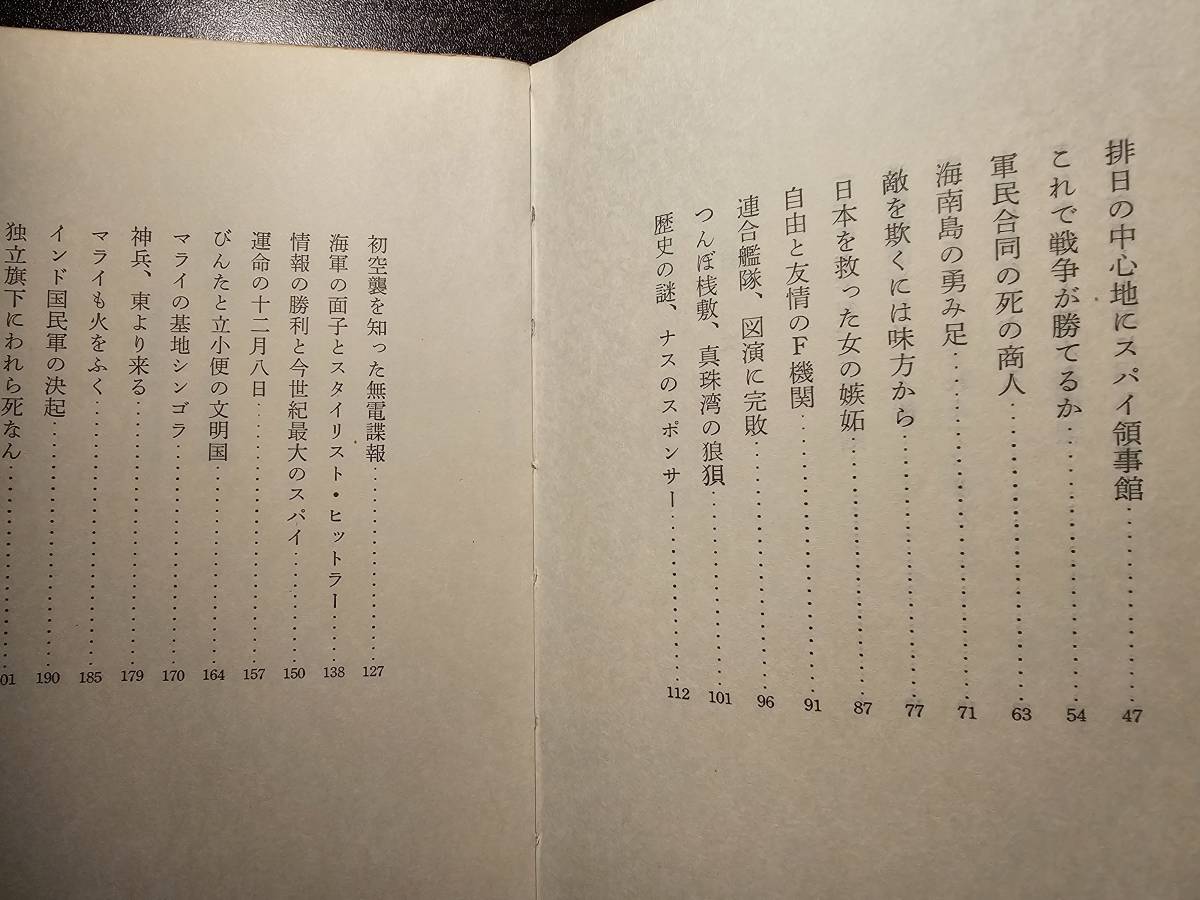 排日の中心地にスパイ領事館……………47
これで戦争が勝てるか……………54
軍民合同の死の商人……………63
海南島の勇み足……………71
敵を欺くには味方から……………77
日本を救った女の嫉妬……………87
自由と友情のF機関……………91
連合艦隊、図演に完敗……………96
つんぼ桟敷、真珠湾の狼狽……………101
歴史の謎、ナスのスポンサー……………112
初空襲を知った無電諜報……………127
海軍の面子とスタイリスト・ヒットラー……………138
情報の勝利と今世紀最大のスパイ……………150
運命の十二月八日……………157
びんたと立小便の文明国……………164
マライの基地シンゴラ……………170
神兵、東より来る……………179
マライも火をふく……………185
インド国民軍の決起……………190
独立旗下にわれら死なん……………01